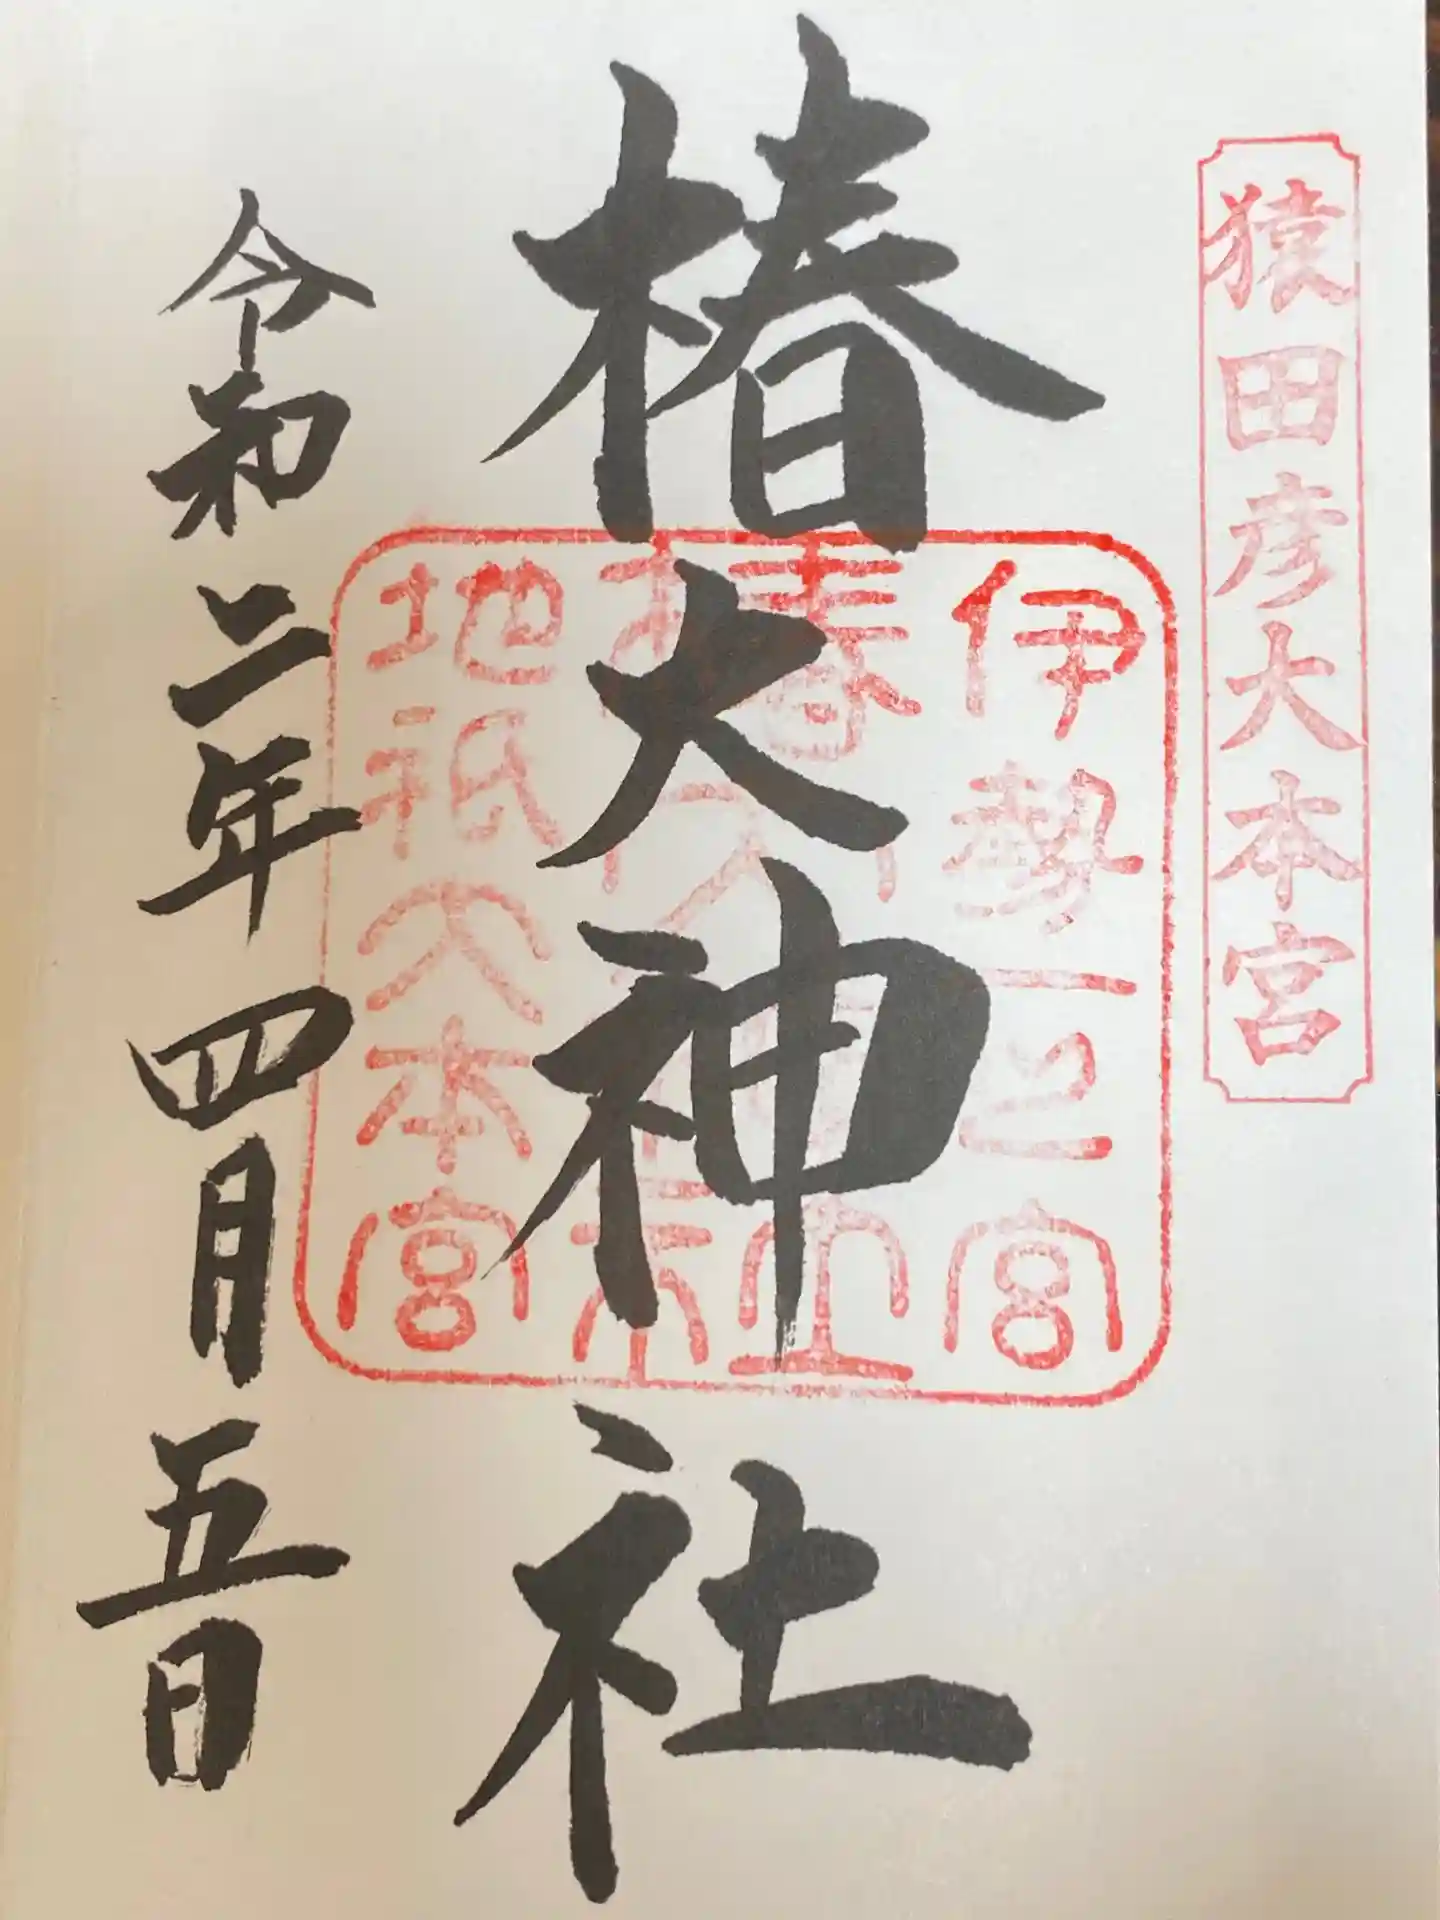 猿田彦大本宮
伊勢一之宮
椿大神社
椿大神社
地祇大本宮
令和二年四月五日